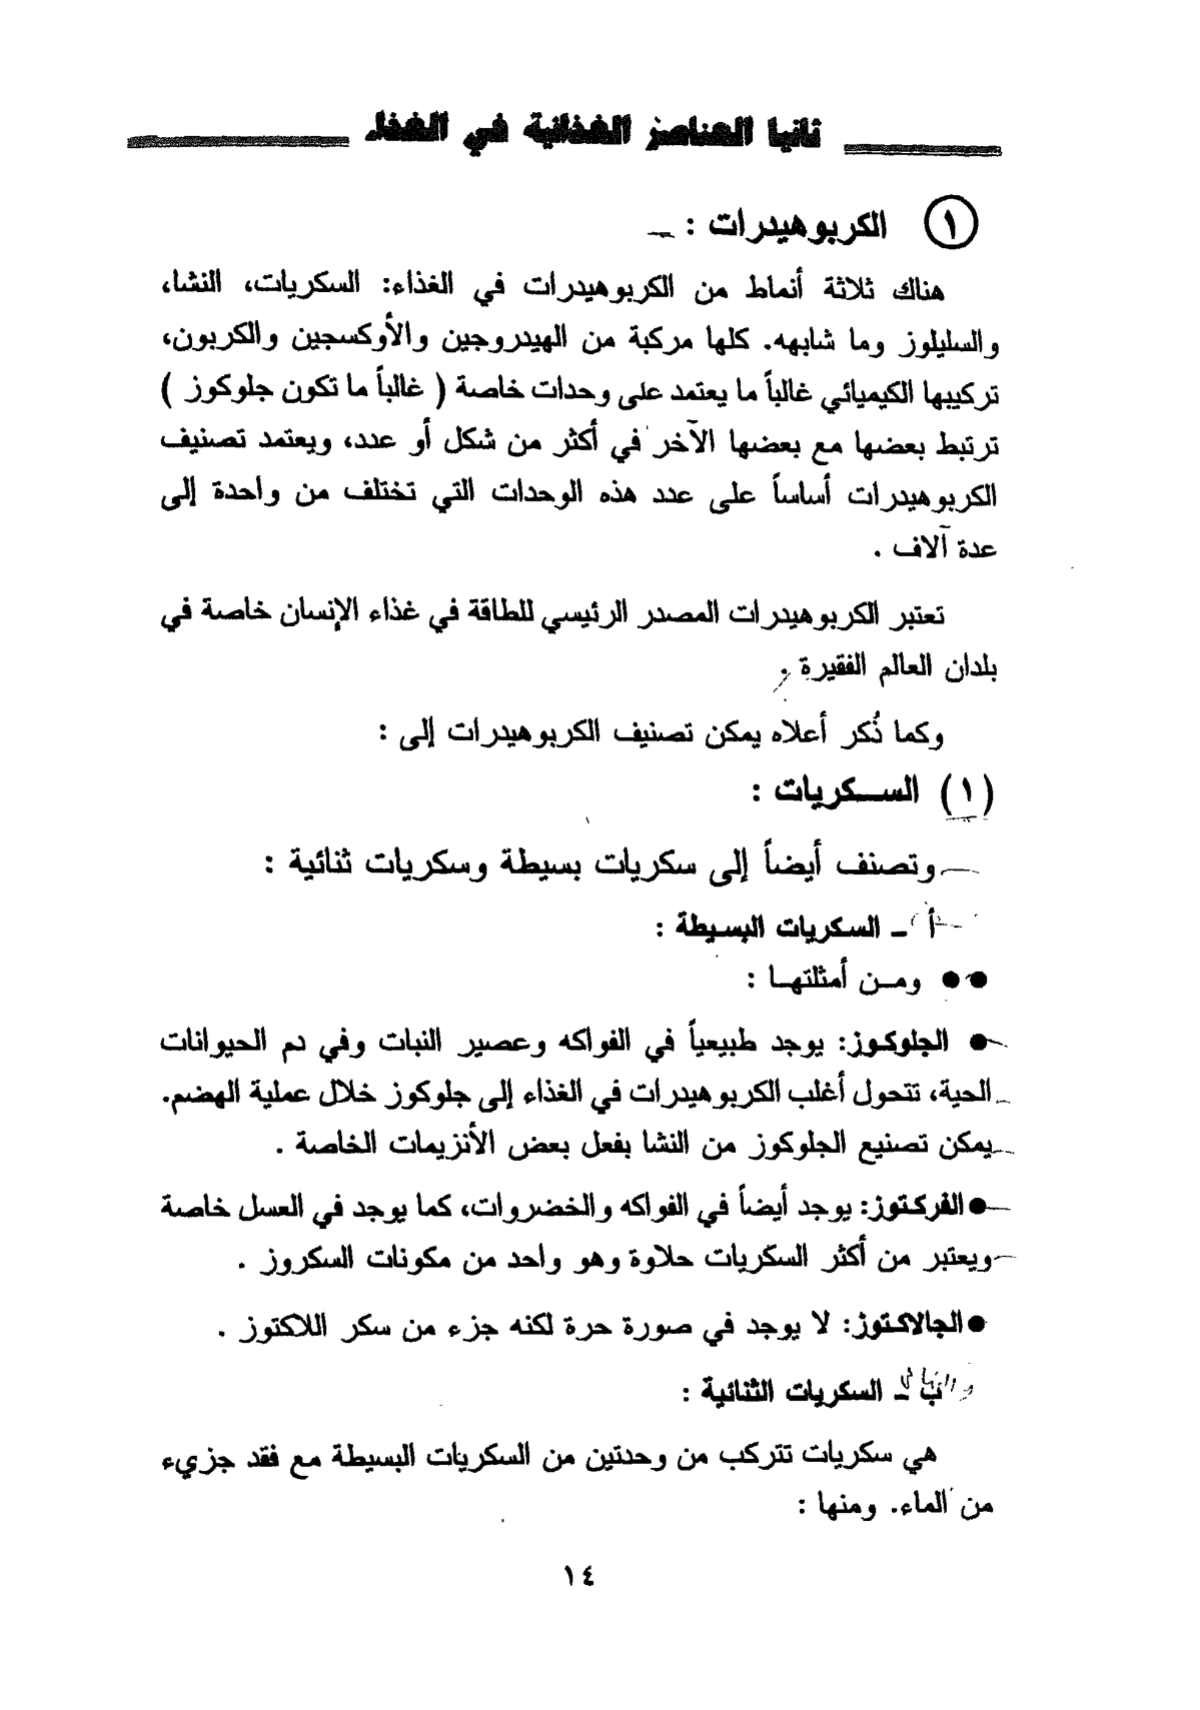 ثانيا العناصر الغذائية في الغذاء
١ الكربوهيدرات :
هناك ثلاثة أنماط من الكربوهيدرات في الغذاء: السكريات، النشا،
والسليلوز وما شابهه. كلها مركبة من الهيدروجين والأوكسجين والكربون،
تركيبها الكيميائي غالباً ما يعتمد على وحدات خاصة ( غالباً ما تكون جلوكوز )
ترتبط بعضها مع بعضها الآخر في أكثر من شكل أو عدد، ويعتمد تصنيف
الكربوهيدرات أساساً على عدد هذه الوحدات التي تختلف من واحدة إلى
عدة آلاف .
تعتبر الكربوهيدرات المصدر الرئيسي للطاقة في غذاء الإنسان خاصة في
بلدان العالم الفقيرة .
وكما ذُكر أعلاه يمكن تصنيف الكربوهيدرات إلى :
(١) الســكريات :
وتصنف أيضاً إلى سكريات بسيطة وسكريات ثنائية :
أ ـ السكريات البسيطة :
●● ومــن أمثلتهــا :
● الجلوكوز: يوجد طبيعياً في الفواكه وعصير النبات وفي دم الحيوانات
الحية، تتحول أغلب الكربوهيدرات في الغذاء إلى جلوكوز خلال عملية الهضم.
يمكن تصنيع الجلوكوز من النشا بفعل بعض الأنزيمات الخاصة .
● الفركتوز: يوجد أيضاً في الفواكه والخضروات، كما يوجد في العسل خاصة
ويعتبر من أكثر السكريات حلاوة وهو واحد من مكونات السكروز .
● الجالاكتوز: لا يوجد في صورة حرة لكنه جزء من سكر اللاكتوز .
ب ـ السكريات الثنائية :
هي سكريات تتركب من وحدتين من السكريات البسيطة مع فقد جزيء
من الماء. ومنها :
١٤